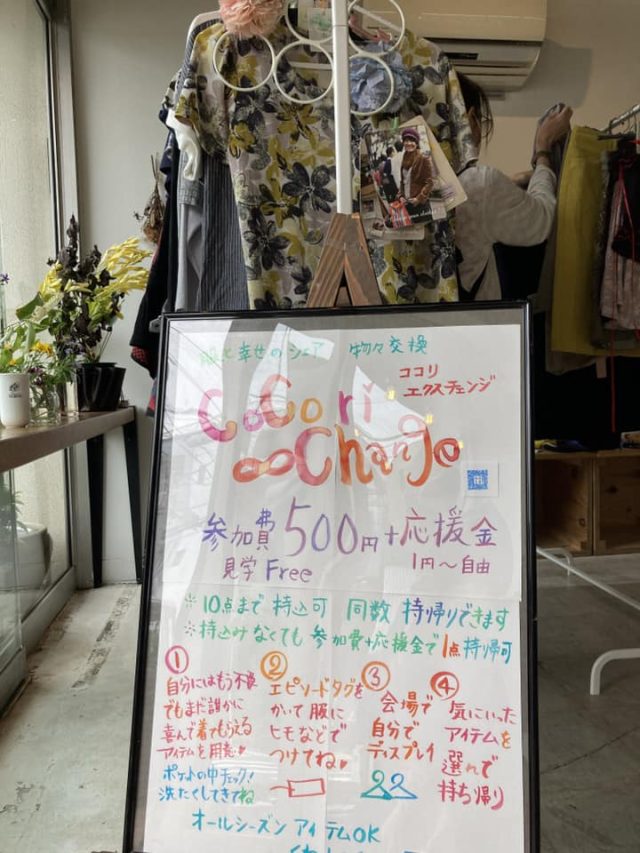 服と幸せのシェア 物々交換
CoCori
ココリ
エクスチェンジ
∞Change
参加費500円+応援金
見学 Free 1円〜自由
※10点まで持込可 同数 持帰りできます
※持込みなくても 参加費+応援金で1点持帰可
①
自分にはもう不要
でもまだ誰かに
喜んで着てもらえる
アイテムを用意♥
ポケットの中チェック!
洗たくしてきてね
②
エピソードタグを
かいて服に
ヒモなどで
つけてね♥
③
会場で
自分で
ディスプレイ
④
気にいった
アイテムを
選んで
持ち帰り
オールシーズン アイテムOK